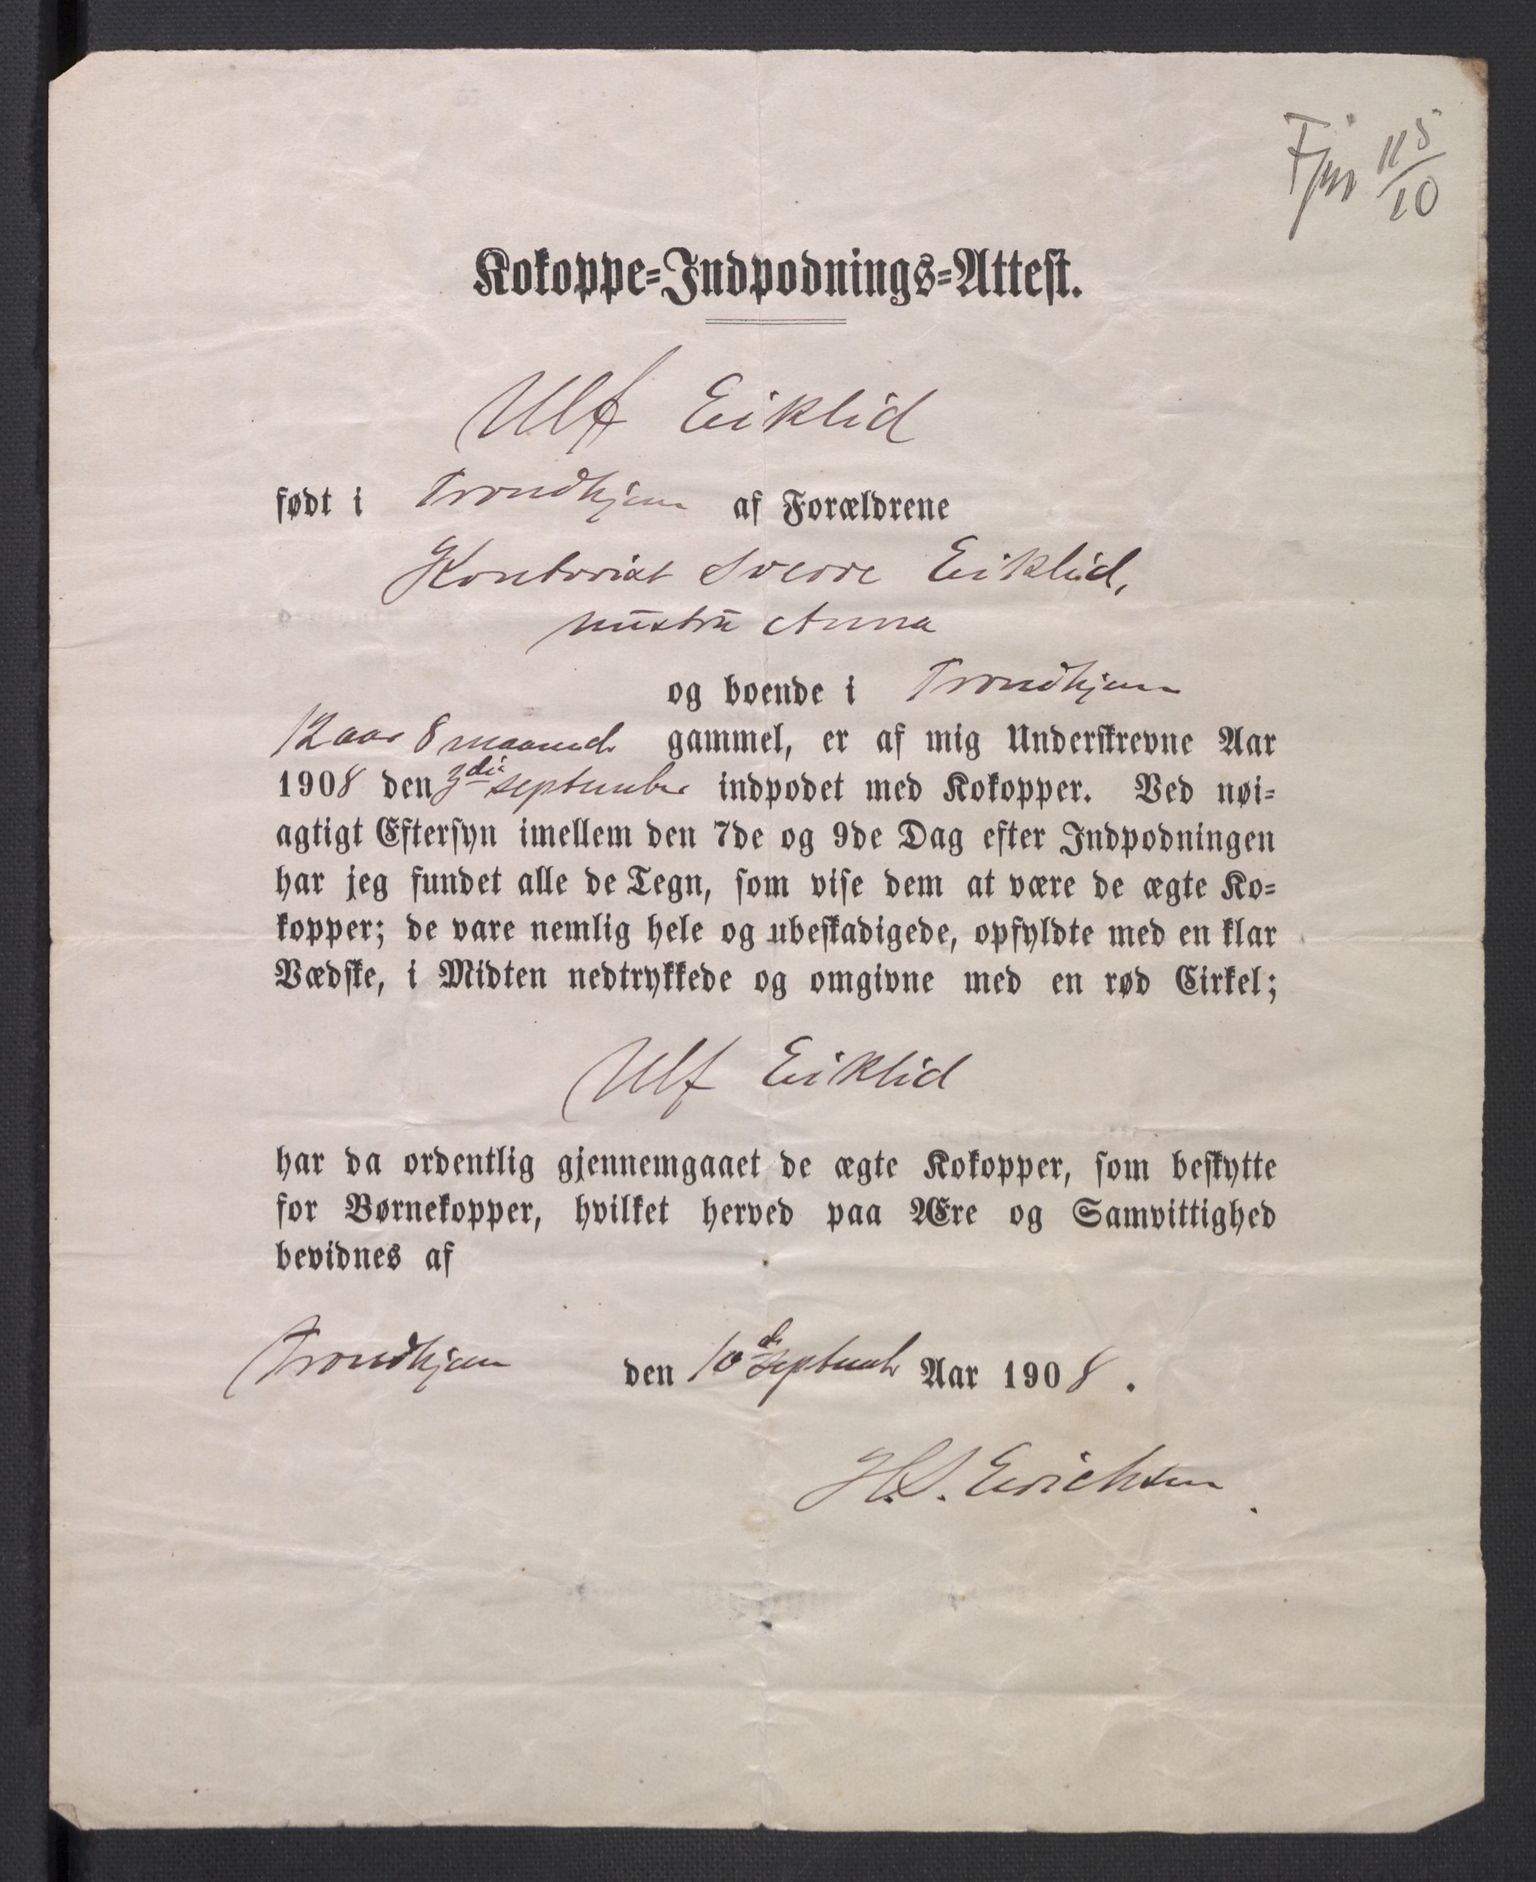 115/10
Kokoppe-Indpodnings-Attest.
Ulf Eiklid
født i Trondhjem af Forældrene
Kontorist Sverre Eiklid,
hustru Anna
og boende i Trondhjem
12 aar 8 maaned. gammel, er af mig Underskrevne Aar
1908 den 3die september indpodet med Kokopper. Ved nøi-
agtigt Eftersyn imellem den 7de og 9de Dag efter Indpodningen
har jeg fundet alle de Tegn, som vise dem at være de ægte Ko-
kopper; de vare nemlig hele og ubeskadigede, opfyldte med en klar
Vædske, i Midten nedtrykkede og omgivne med en rød Cirkel;
Ulf Eiklid
har da ordentlig gjennemgaaet de ægte Kokopper, som beskytte
for Børnekopper, hvilket herved paa Ære og Samvittighed
bevidnes af
Trondhjem den 10de septemb. Aar 1908.
H.S. Erichsen.